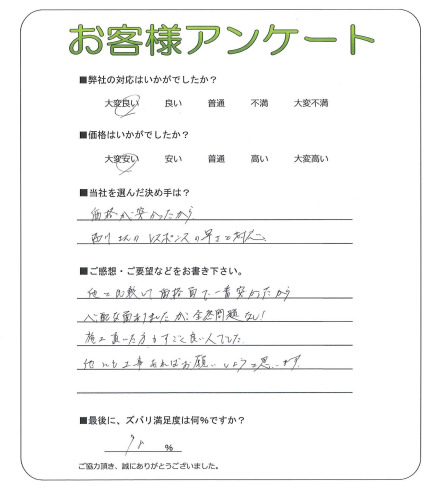 お客様アンケート
■弊社の対応はいかがでしたか？
大変良い 良い 普通 不満 大変不満
■価格はいかがでしたか？
大変安い 安い 普通 高い 大変高い
■当社を選んだ決め手は？
価格が安かったから
西川さんのレスポンスの早さと対応
■ご感想・ご要望などをお書き下さい。
他と比較して価格面で一番安かったから
心配な面ありましたが、全然問題なし！
施工頂いた方もすごく良い人でした
他にも工事あればお願いしようと思います
■最後に、ズバリ満足度は何％ですか？
％
ご協力頂き、誠にありがとうございました。